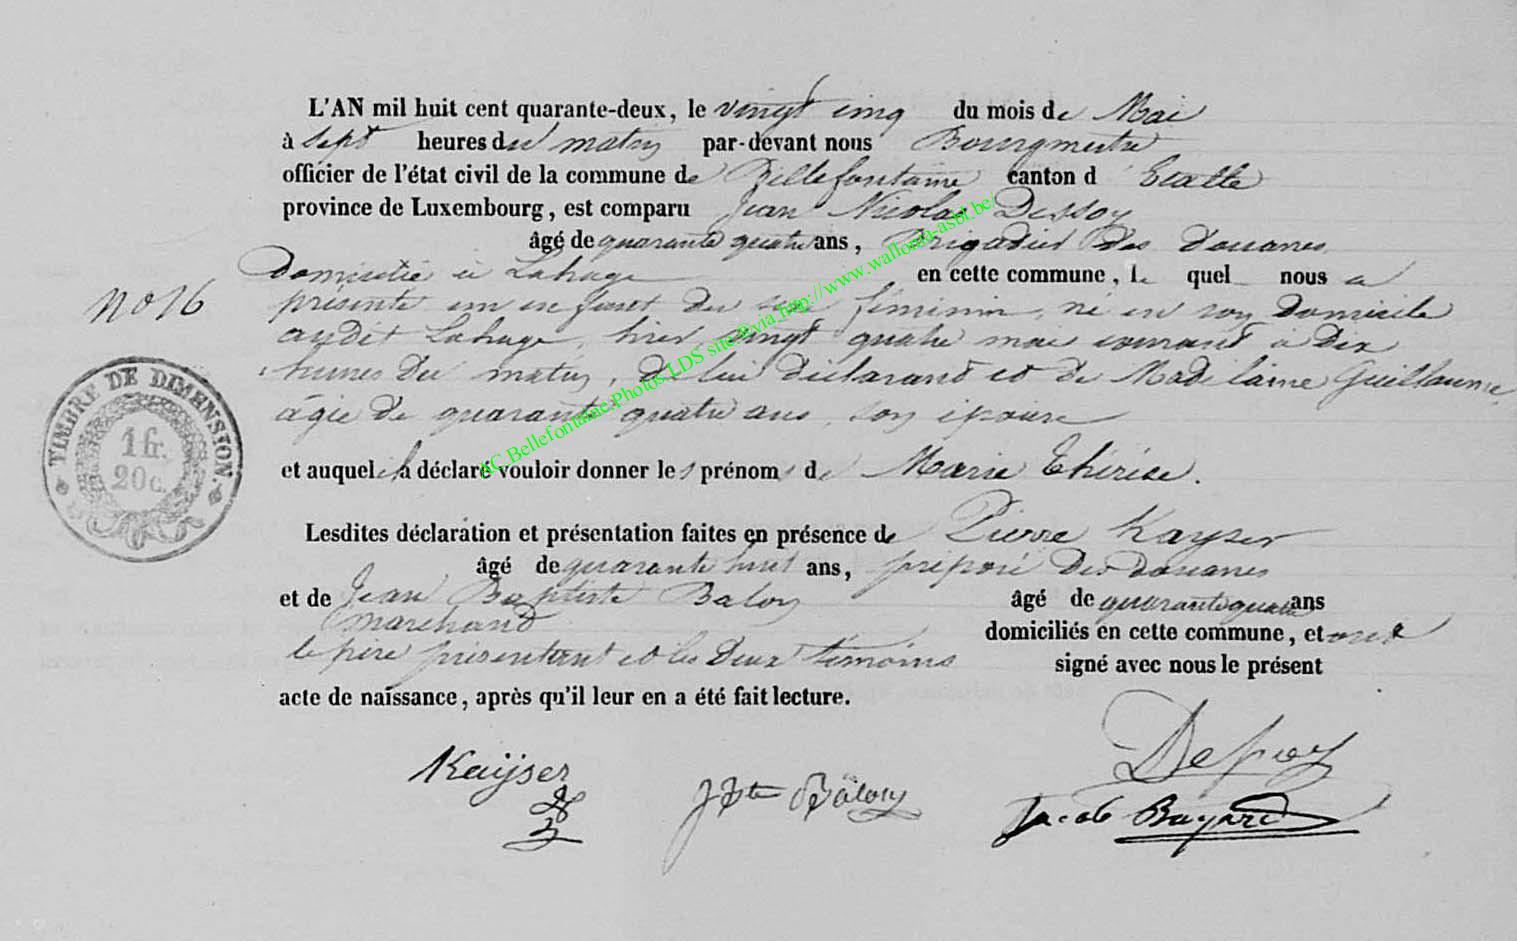 L'AN mil huit cent quarante-deux, le vingt cinq du mois de Mai
à sept heures du matin par-devant nous Bourgmestre
officier de l'état civil de la commune de Bellefontaine canton d' Etalle
province de Luxembourg, est comparu Jean Nicolas Dessoy
âgé de quarante quatre ans, Brigadier des douanes
Domicilié à Lahage en cette commune, le quel nous a
No 16
présenté un enfant du sexe féminin, né en son domicile
audit Lahage, hier vingt quatre mai courant à dix
heures du matin, de lui déclarant et de Madelaine Guillaume
âgée de quarante quatre ans, son épouse
TIMBRE DE DIMENSION.
1 fr.
20 c.
et auquel il a déclaré vouloir donner les prénoms de Marie Thérèse.
Lesdites déclaration et présentation faites en présence de Pierre Kayser
âgé de quarante huit ans, préposé des douanes
et de Jean Baptiste Baloy âgé de quarante quatre ans
marchand domiciliés en cette commune, et ont
le père présentant et les deux témoins signé avec nous le présent
acte de naissance, après qu'il leur en a été fait lecture.
Kaÿser
JBte Băloy
Dessoy
Jacob Bayard
AC.Bellefontaine.Photos.LDS site®via http://www.wallonia-asbl.be/